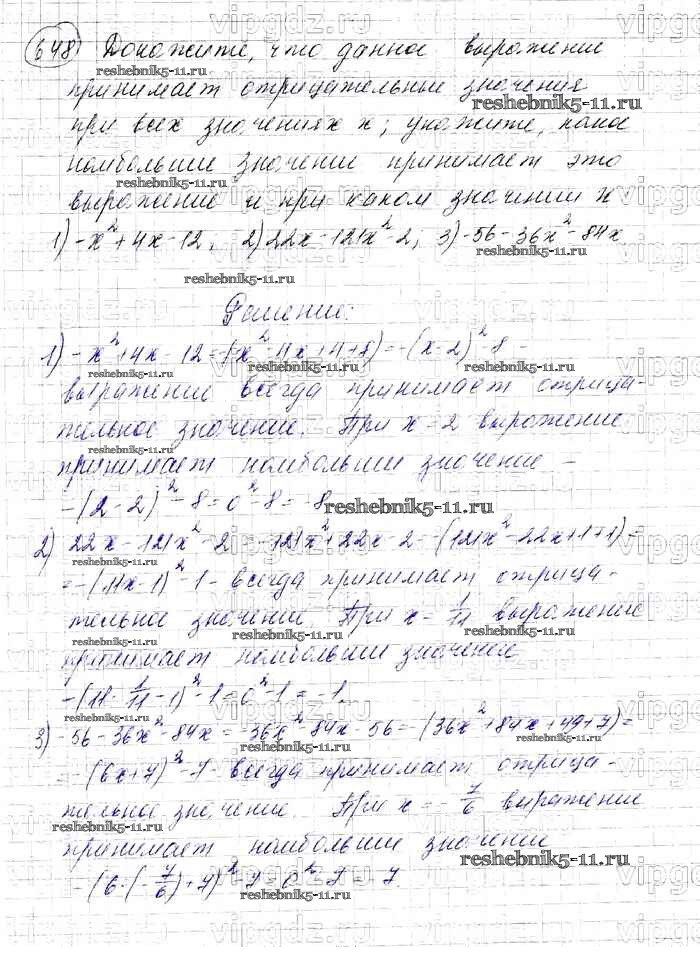 648 Докажите, что данное выражение
принимает отрицательные значения
при всех значениях x; укажите, какое
наибольшее значение принимает это
выражение и при каком значении x
1) -x²+4x-12; 2) 22x-121x²-2; 3) -56-36x²-84x
Решение:
1) -x²+4x-12=-(x²-4x+4+8)=-(x-2)²-8 -
выражение всегда принимает отрица-
тельное значение. При x=2 выражение
принимает наибольшее значение -
-(2-2)²-8=0²-8=-8.
2) 22x-121x²-2=-121x²+22x-2=-(121x²-22x+1+1)=
=-(11x-1)²-1- всегда принимает отрица-
тельное значение. При x=1/11 выражение
принимает наибольшее значение
-(11·1/11-1)²-1=0²-1=-1.
3) -56-36x²-84x=-36x²-84x-56=-(36x²+84x+49+7)=
=-(6x+7)²-7- всегда принимает отрица-
тельное значение. При x=-7/6 выражение
принимает наибольшее значение
-(6·(-7/6)+7)²-7=0²-7=-7.
reshebnik5-11.ru
vipgdz.ru